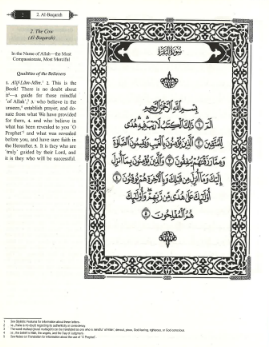 2 2. Al-Baqarah
2. The Cow
(Al-Baqarah)
In the Name of Allah—the Most
Compassionate, Most Merciful
Qualities of the Believers
1. Alif-Lãm-Mĩm. 2. This is the
Book! There is no doubt about
it—a guide for those mindful
‘of Allah’, 3. who believe in the
unseen, establish prayer, and do-
nate from what We have provided
for them, 4. and who believe in
what has been revealed to you ‘O
Prophet’ and what was revealed
before you, and have sure faith in
the Hereafter. 5. It is they who are
‘truly’ guided by their Lord, and
it is they who will be successful.
سورة البقرة
٢
بسم الله الرحمن الرحيم
الم ١ ذلك الكتب لا ريب فيه هدى
للمتقين ٢ الذين يؤمنون بالغيب ويقيمون الصلوة
ومما رزقنهم ينفقون ٣ والذين يؤمنون بما أنزل
إليك وما أنزل من قبلك وبالآخرة هم يوقنون ٤
أولئك على هدى من ربهم وأولئك
هم المفلحون ٥